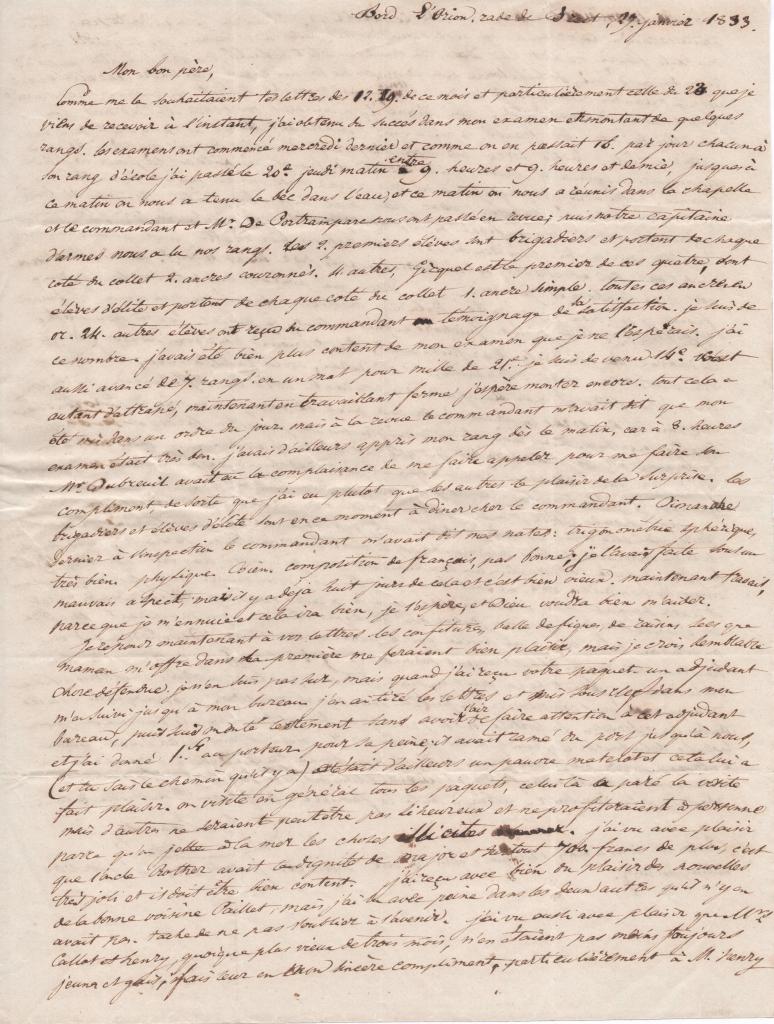 Bord L'Orion, rade de Brest, 27 janvier 1833.
Mon bon père,
Comme me la souhaitaient tes lettres des 12. 19. de ce mois et particulièrement celle du 23 que je
viens de recevoir à l'instant, j'ai obtenu du succès dans mon examen et montant de quelques
rangs. les examens ont commencé mercredi dernier et comme on en passait 16. par jour chacun à
son rang d'école j'ai passé le 20e jeudi matin entre 9. heures et 9. heures et demie, jusques à
ce matin on nous a tenu le bec dans l'eau, et ce matin on nous a réunis dans la chapelle
et le commandant et Mr. De Portzamparc nous ont passé en revue; puis notre capitaine
d'armes nous a lu nos rangs. Les 2. premiers élèves sont brigadiers et portent de chaque
coté du collet 2. ancres couronnés. 4 autres, Gicquel est le premier de ces quatre, sont
élèves d'élite et portent de chaque coté du collet 1. ancre simple. toutes ces ancres en
or. 24. autres élèves ont reçu du commandant un témoignage de sa satisfaction. je suis de
ce nombre. j'avais été bien plus content de mon examen que je ne l'espérais. j'ai
aussi avancé de 7. rangs. en un mot pour mille de 21e. je suis devenu 14e. c'est
autant d'attrapé, maintenant en travaillant ferme j'espère monter encore. tout cela a
été mis dans un ordre du jour mais à la revue le commandant m'avait dit que mon
examen était très bon. j'avais d'ailleurs appris mon rang dès le matin, car à 8. heures
Mr. Dubreuil avait eu la complaisance de me faire appeler pour me faire son
compliment, de sorte que j'ai eu plutot que les autres le plaisir de la surprise. les
brigadiers et élèves d'élite sont en ce moment à diner chez le commandant. Dimanche
dernier à l'inspection le commandant m'avait dit mes notes: trigonométrie sphérique,
très bien. physique idem. composition de français, pas bonne; je l'avais faite sous un
mauvais aspect, mais il y a déjà huit jours de cela et c'est bien vieux. maintenant travail,
parce que je m'ennuie et cela ira bien, je l'espère, et Dieu voudra bien m'aider.
Je réponds maintenant à vos lettres. les confitures, balle de figues de raisins secs que
maman m'offre dans la première me feraient bien plaisir, mais je crois semblable
chose défendue. je n'en suis pas sur, mais quand j'ai reçu votre paquet un adjudant
m'a suivi jusqu'à mon bureau j'en ai tiré les lettres et mis sous clef dans mon
bureau, puis suis monté lestement sans avoir l'air de faire attention à cet adjudant
et j'ai donné 1.fr au porteur pour sa peine; il avait ramé du port jusqu'à nous,
(et tu sais le chemin qu'il y a) c'était d'ailleurs un pauvre matelot et cela lui a
fait plaisir. on visite en général tous les paquets, celui là a paré la visite
mais d'autres ne seraient peut etre pas si heureux et ne profiteraient à personne
parce qu'on jette à la mer les choses illicites. j'ai vu avec plaisir
que l'oncle Rother avait la dignité de major et surtout 700. francs de plus, c'est
très joli et il doit être bien content. j'ai reçu avec bien du plaisir des nouvelles
de la bonne voisine Paillet, mais j'ai vu avec peine dans les deux autres qu'il n'y en
avait pas. tache de ne pas l'oublier à l'avenir. j'ai vu aussi avec plaisir que Mrs
Callot et henry, quoique plus vieux de trois mois, n'en étaient pas moins toujours
jeunes et gais, fais leur en mon sincère compliment, particulièrement à M. henry